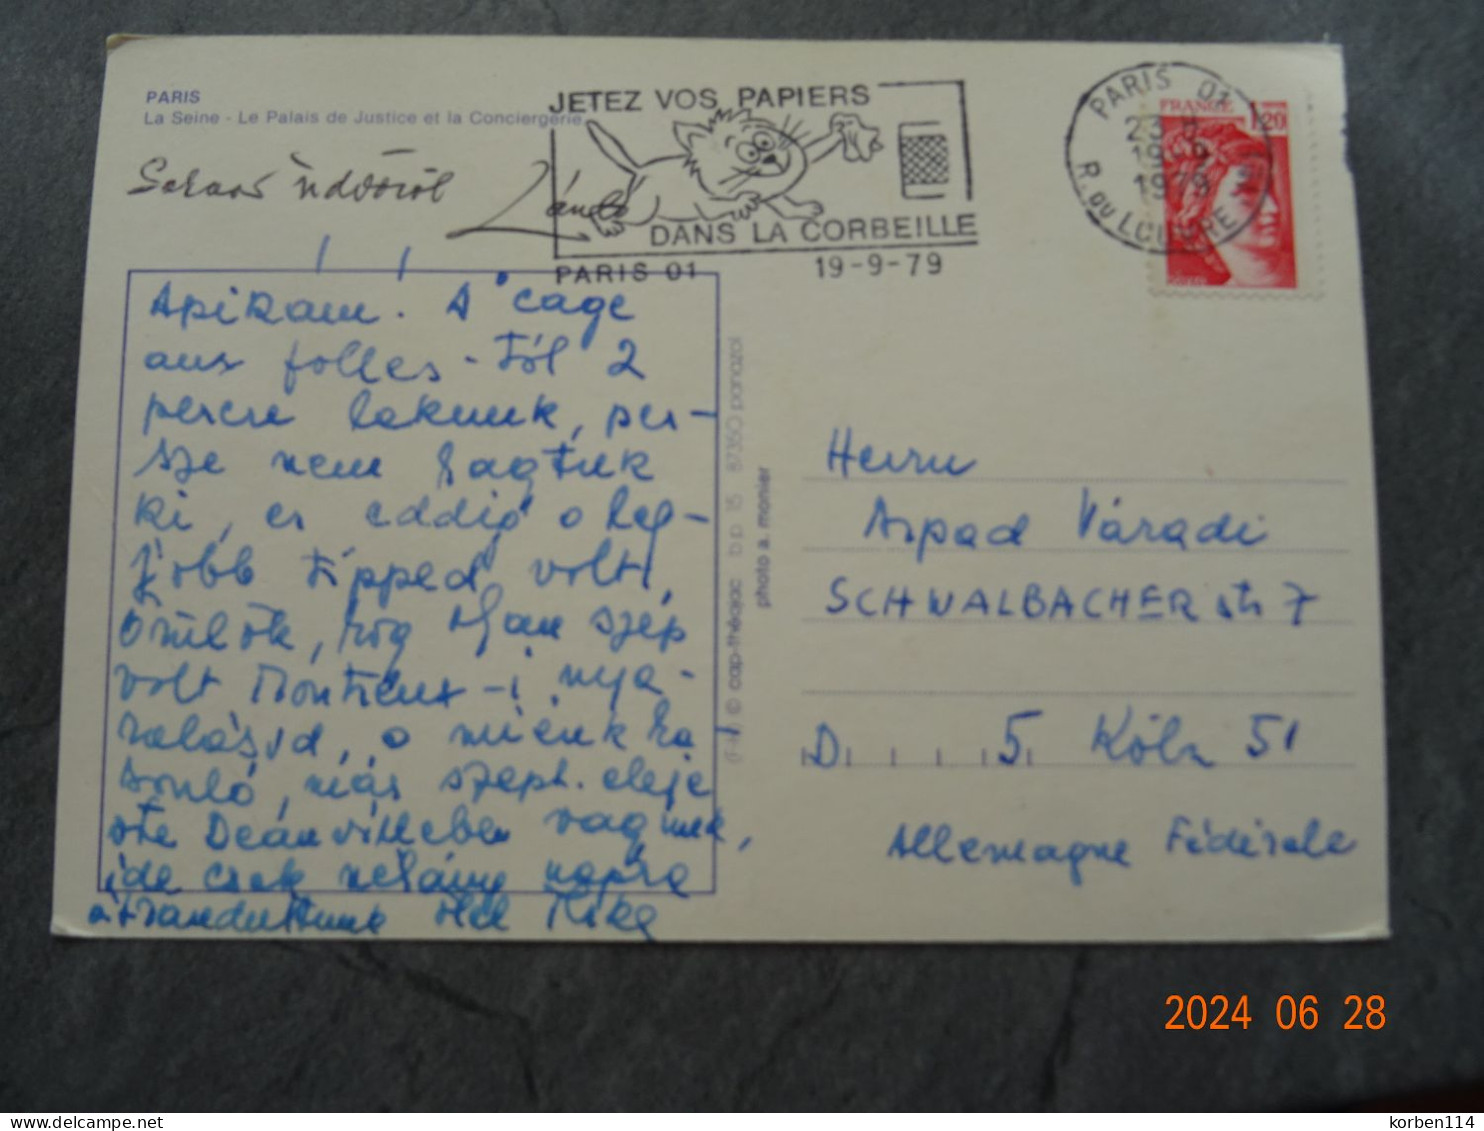 PARIS
La Seine - Le Palais de Justice et la Conciergerie.
JETEZ VOS PAPIERS
DANS LA CORBEILLE
PARIS 01 19-9-79
PARIS 01
23 H
19-9
1979
R. DU LOUVRE
FRANCE 1,20
Sokszor üdvözöl
Apikám. A "cage
aux folles-tól 2
percre lakunk, per-
sze nem hagytuk
ki, ez eddig a leg-
jobb tipped volt,
örülök, hogy olyan szép
volt Montreux-i nya-
ralásod, a miénk ha-
sonló, már szept. eleje
óta Deauvilleben vagyunk,
ide csak néhány napra
átrándultunk ölel
(F-N) © cap-théojac b.p. 15 87350 panazol
photo a. monier
Herrn
Arpad Váradi
SCHWALBACHER str 7
D 5 Köln 51
Allemagne Fédérale
2024 06 28
korben114